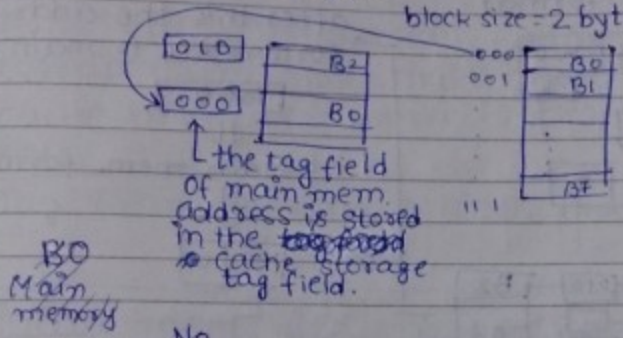 block size = 2 byt
010
B2
000
B0
001
B1
000
B0
111
B7
the tag field
of main mem.
address is stored
in the tag field
cache storage
tag field.
B0
Main
memory
No